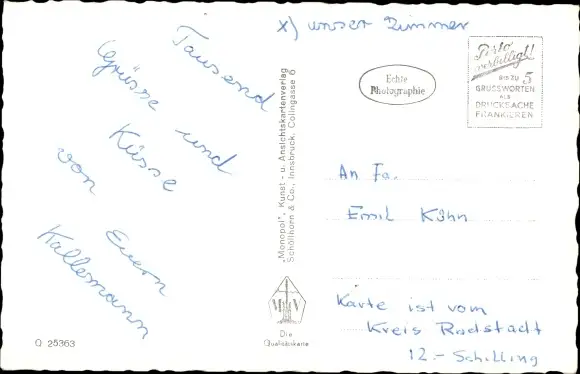 x) unser Zimmer
Tausend
Grüsse und
Küsse
von Euern
Kallemann
Echte
Photographie
Porto
verbilligt!
BIS ZU 5
GRUSSWORTEN
ALS
DRUCKSACHE
FRANKIEREN
„Monopol“, Kunst - u. Ansichtskartenverlag
Schöllhorn & Co., Innsbruck, Colingasse 6
An Fa.
Emil Köhn
Karte ist vom
Kreis Radstadt
12.- Schilling
MKV
Die
Qualitätskarte
Q 25363